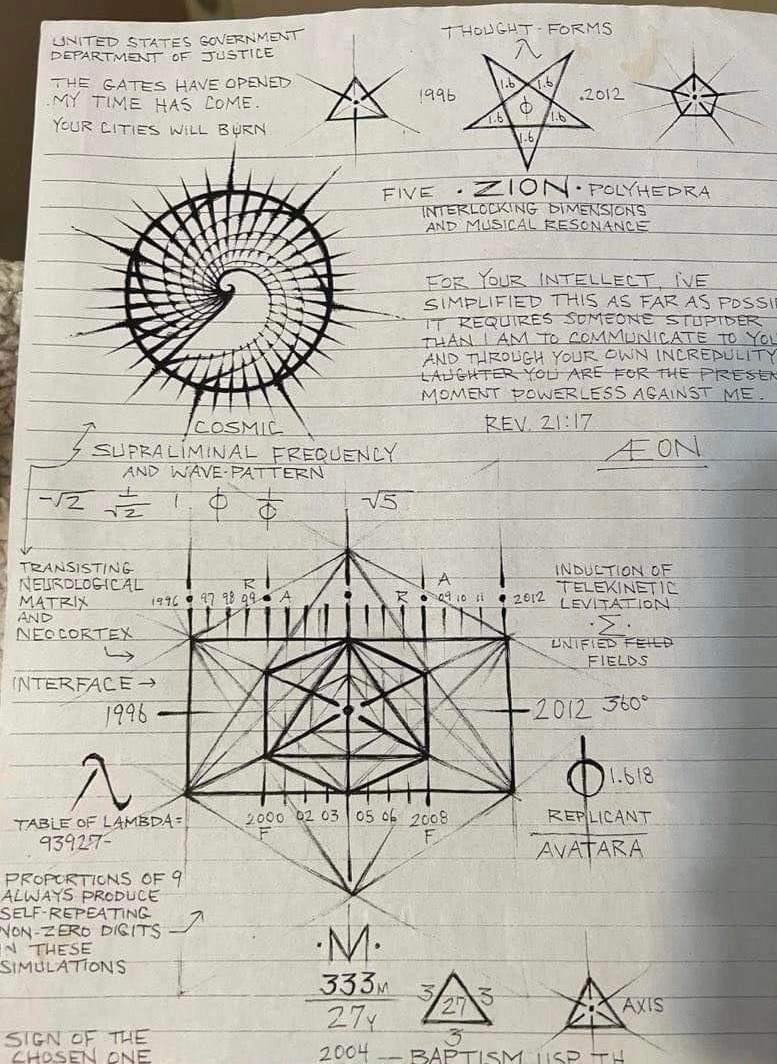 UNITED STATES GOVERNMENT
DEPARTMENT OF JUSTICE
THE GATES HAVE OPENED
MY TIME HAS COME.
YOUR CITIES WILL BURN
THOUGHT-FORMS
λ
1996
1.6
1.6
φ
1.6
1.6
1.6
.2012
FIVE · ZION · POLYHEDRA
INTERLOCKING DIMENSIONS
AND MUSICAL RESONANCE
FOR YOUR INTELLECT, I'VE
SIMPLIFIED THIS AS FAR AS POSSI
IT REQUIRES SOMEONE STUPIDER
THAN I AM TO COMMUNICATE TO YOU
AND THROUGH YOUR OWN INCREDULITY
LAUGHTER YOU ARE FOR THE PRESEN
MOMENT POWERLESS AGAINST ME.
REV. 21:17
ÆON
COSMIC
SUPRALIMINAL FREQUENCY
AND WAVE-PATTERN
√2 1/√2 1 φ 1/φ √5
TRANSISTING
NEUROLOGICAL
MATRIX
AND
NEOCORTEX
INTERFACE →
R A
1996 97 98 99 A R 09 10 11 2012
1996
2012 360°
INDUCTION OF
TELEKINETIC
LEVITATION
·Σ·
UNIFIED FEILD
FIELDS
λ
TABLE OF LAMBDA=
93927-
2000 02 03 05 06 2008
F F
φ 1.618
REPLICANT
AVATARA
PROPORTIONS OF 9
ALWAYS PRODUCE
SELF-REPEATING
NON-ZERO DIGITS
IN THESE
SIMULATIONS
·M·
333M
27Y
3 27 3
3
AXIS
SIGN OF THE
CHOSEN ONE
2004 — BAPTISM